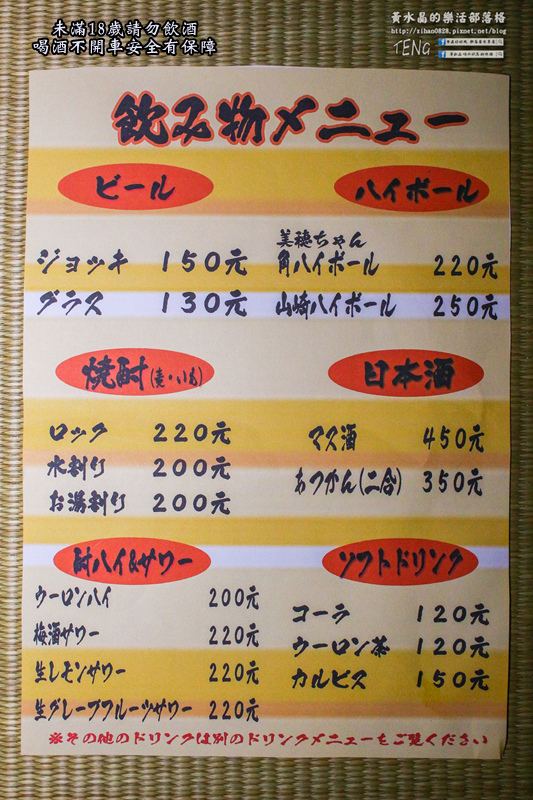 未滿18歲請勿飲酒
喝酒不開車安全有保障
黃水晶的樂活部落格
http://zihao0828.pixnet.net/blog
TENG
飲み物メニュー
ビール
ジョッキ 150元
グラス 130元
ハイボール
美穂ちゃん
角ハイボール 220元
山崎ハイボール 250元
焼酎(麦・いも)
ロック 220元
水割り 200元
お湯割り 200元
日本酒
マス酒 450元
あつかん(二合) 350元
酎ハイ&サワー
ウーロンハイ 200元
梅酒サワー 220元
生レモンサワー 220元
生グレープフルーツサワー 220元
ソフトドリンク
コーラ 120元
ウーロン茶 120元
カルピス 150元
※その他のドリンクは別のドリンクメニューをご覧ください